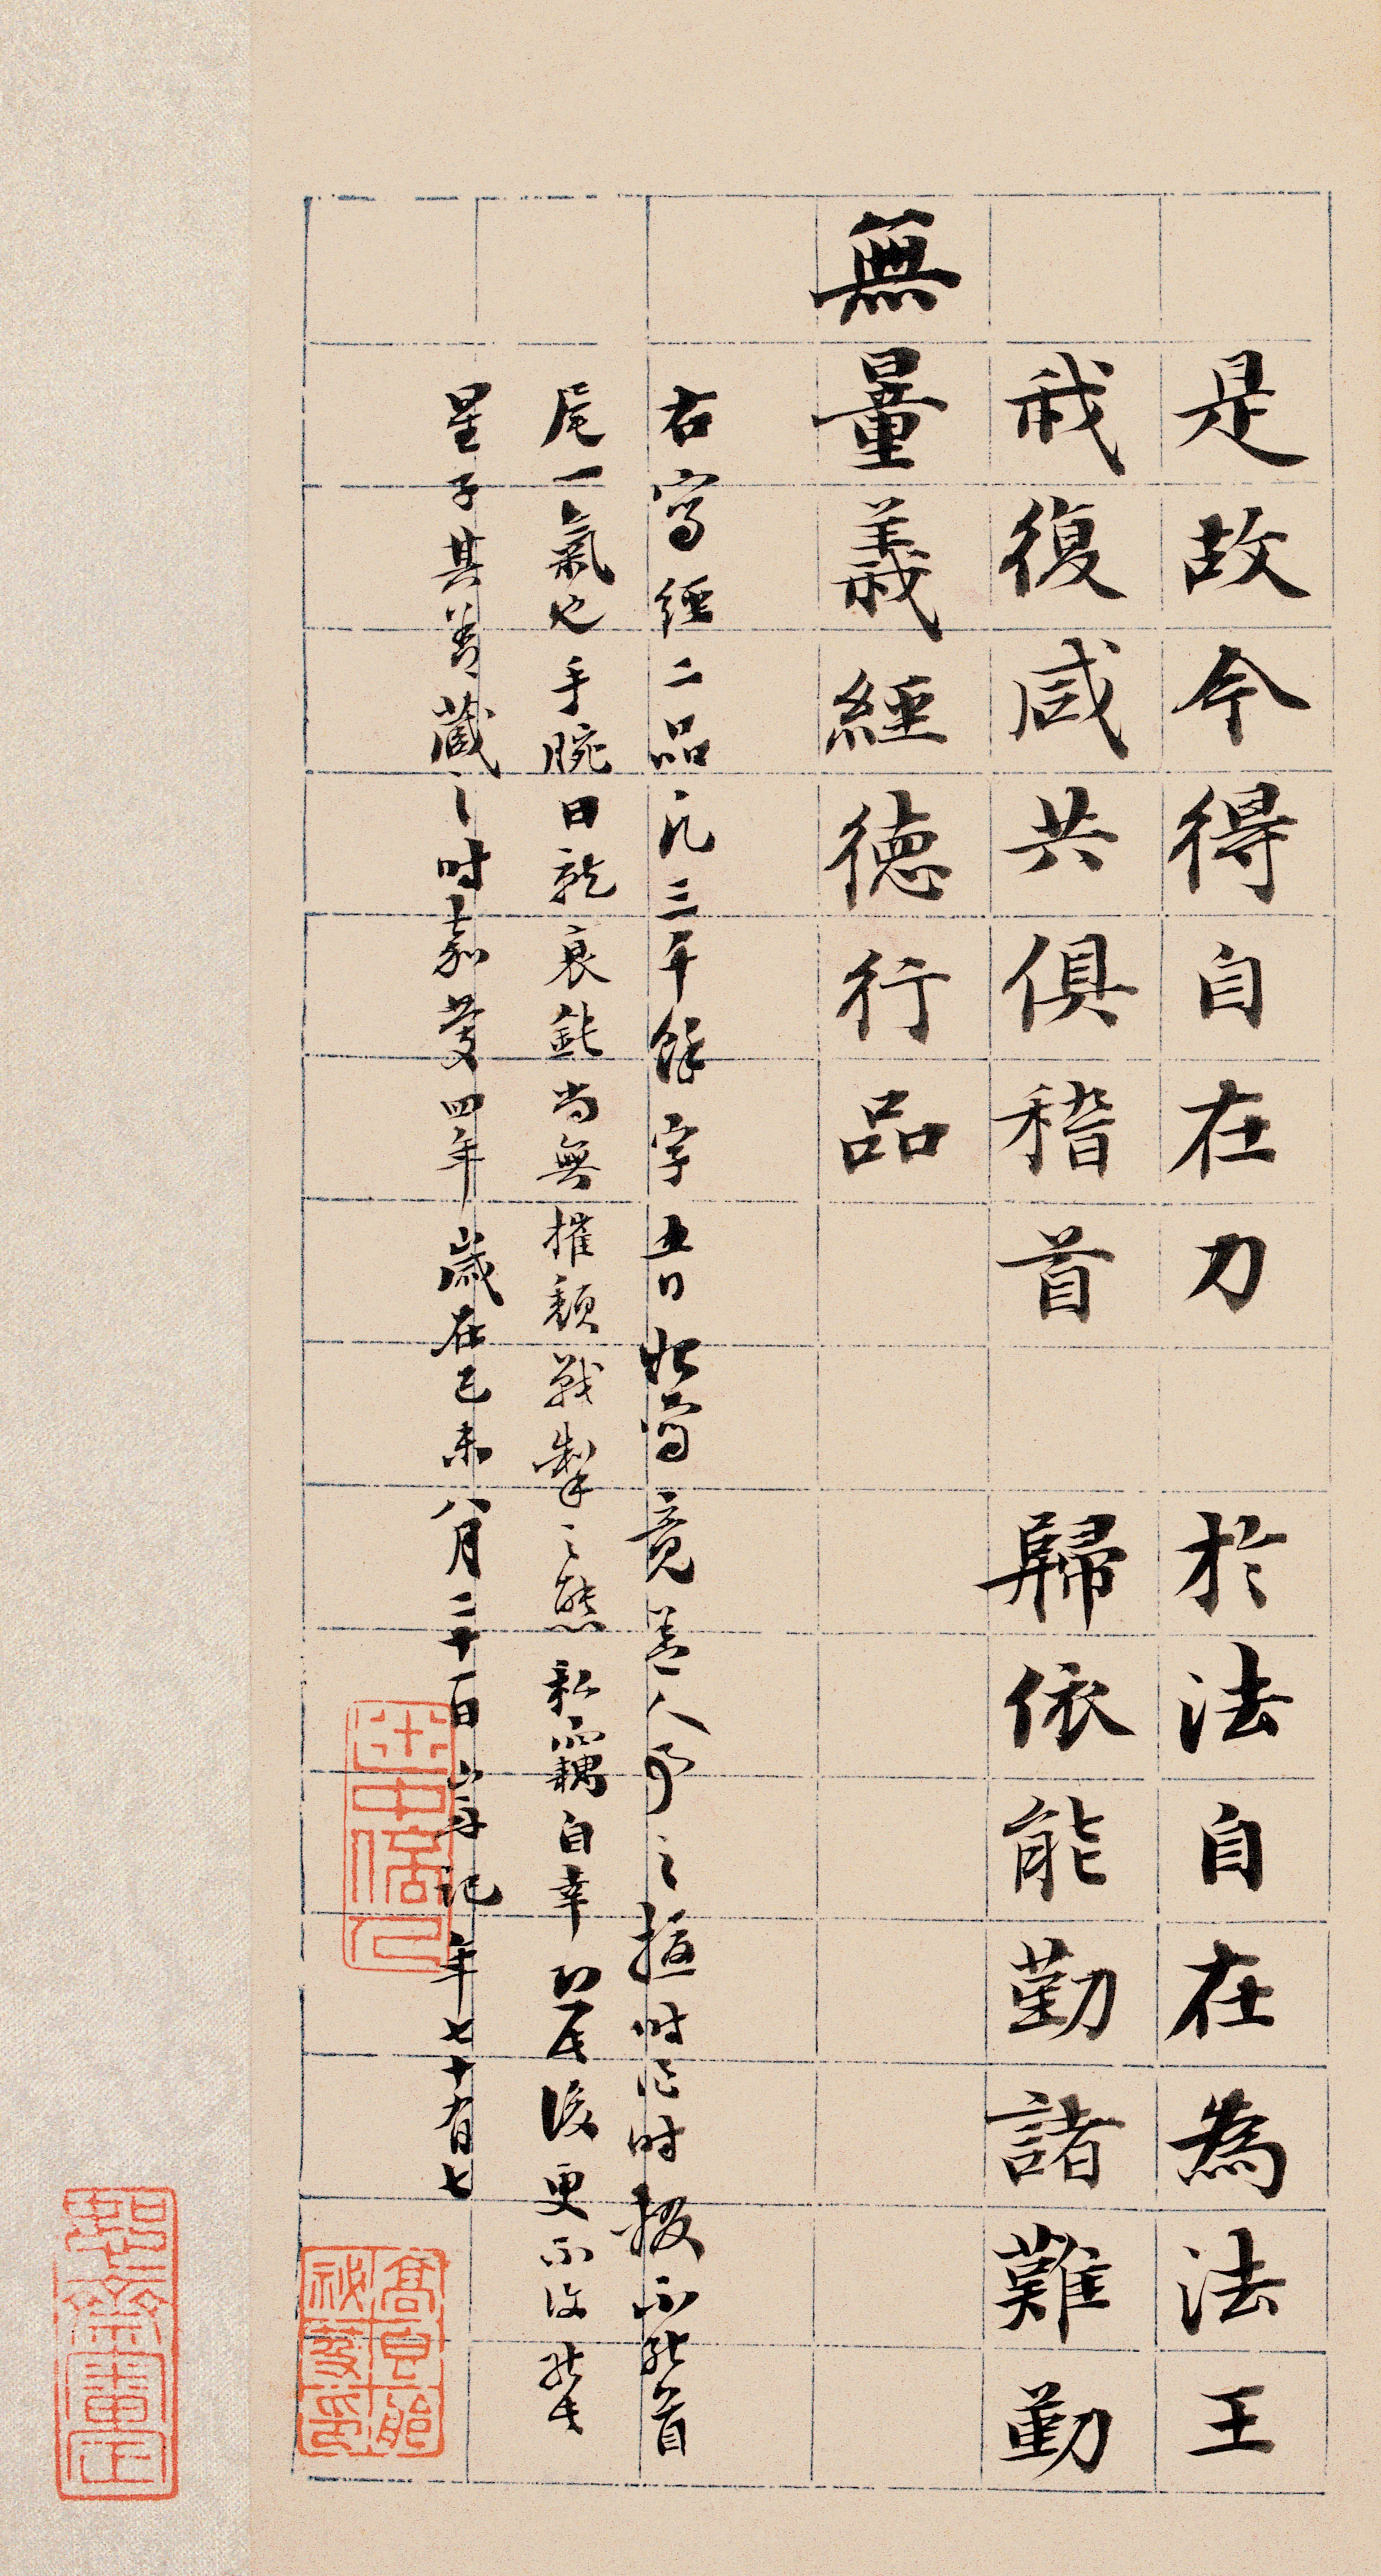 是故今得自在力　於法自在為法王
我復咸共俱稽首　歸依能勤諸難勤
無量義經德行品
右寫經二品凡三千餘字五日始寫竟蓋人事之擾時作時輟不能首
尾一氣也手腕日就衰鈍尚無摧頹戰掣之態私竊自幸以後更不復能
星子其善藏之時嘉慶四年歲在己未八月二十一日山舟記年七十有七